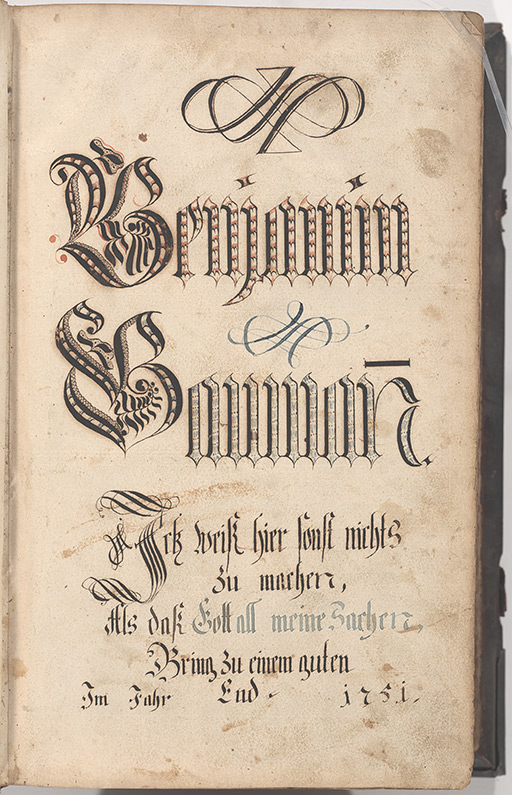 Benjamin
Bauman̄.
Ich weiß hier sonst nichts
zu machen,
Als daß Gott all meine Sachen,
Bring zu einem guten
Im Jahr End. 1751.